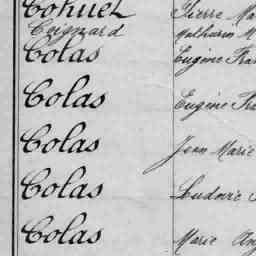 Cohuet Pierre Ma
Coignard Mathurin M
Colas Eugène Fra
Colas Eugène Fra
Colas Jean Marie
Colas Ludovic
Colas Marie Ang